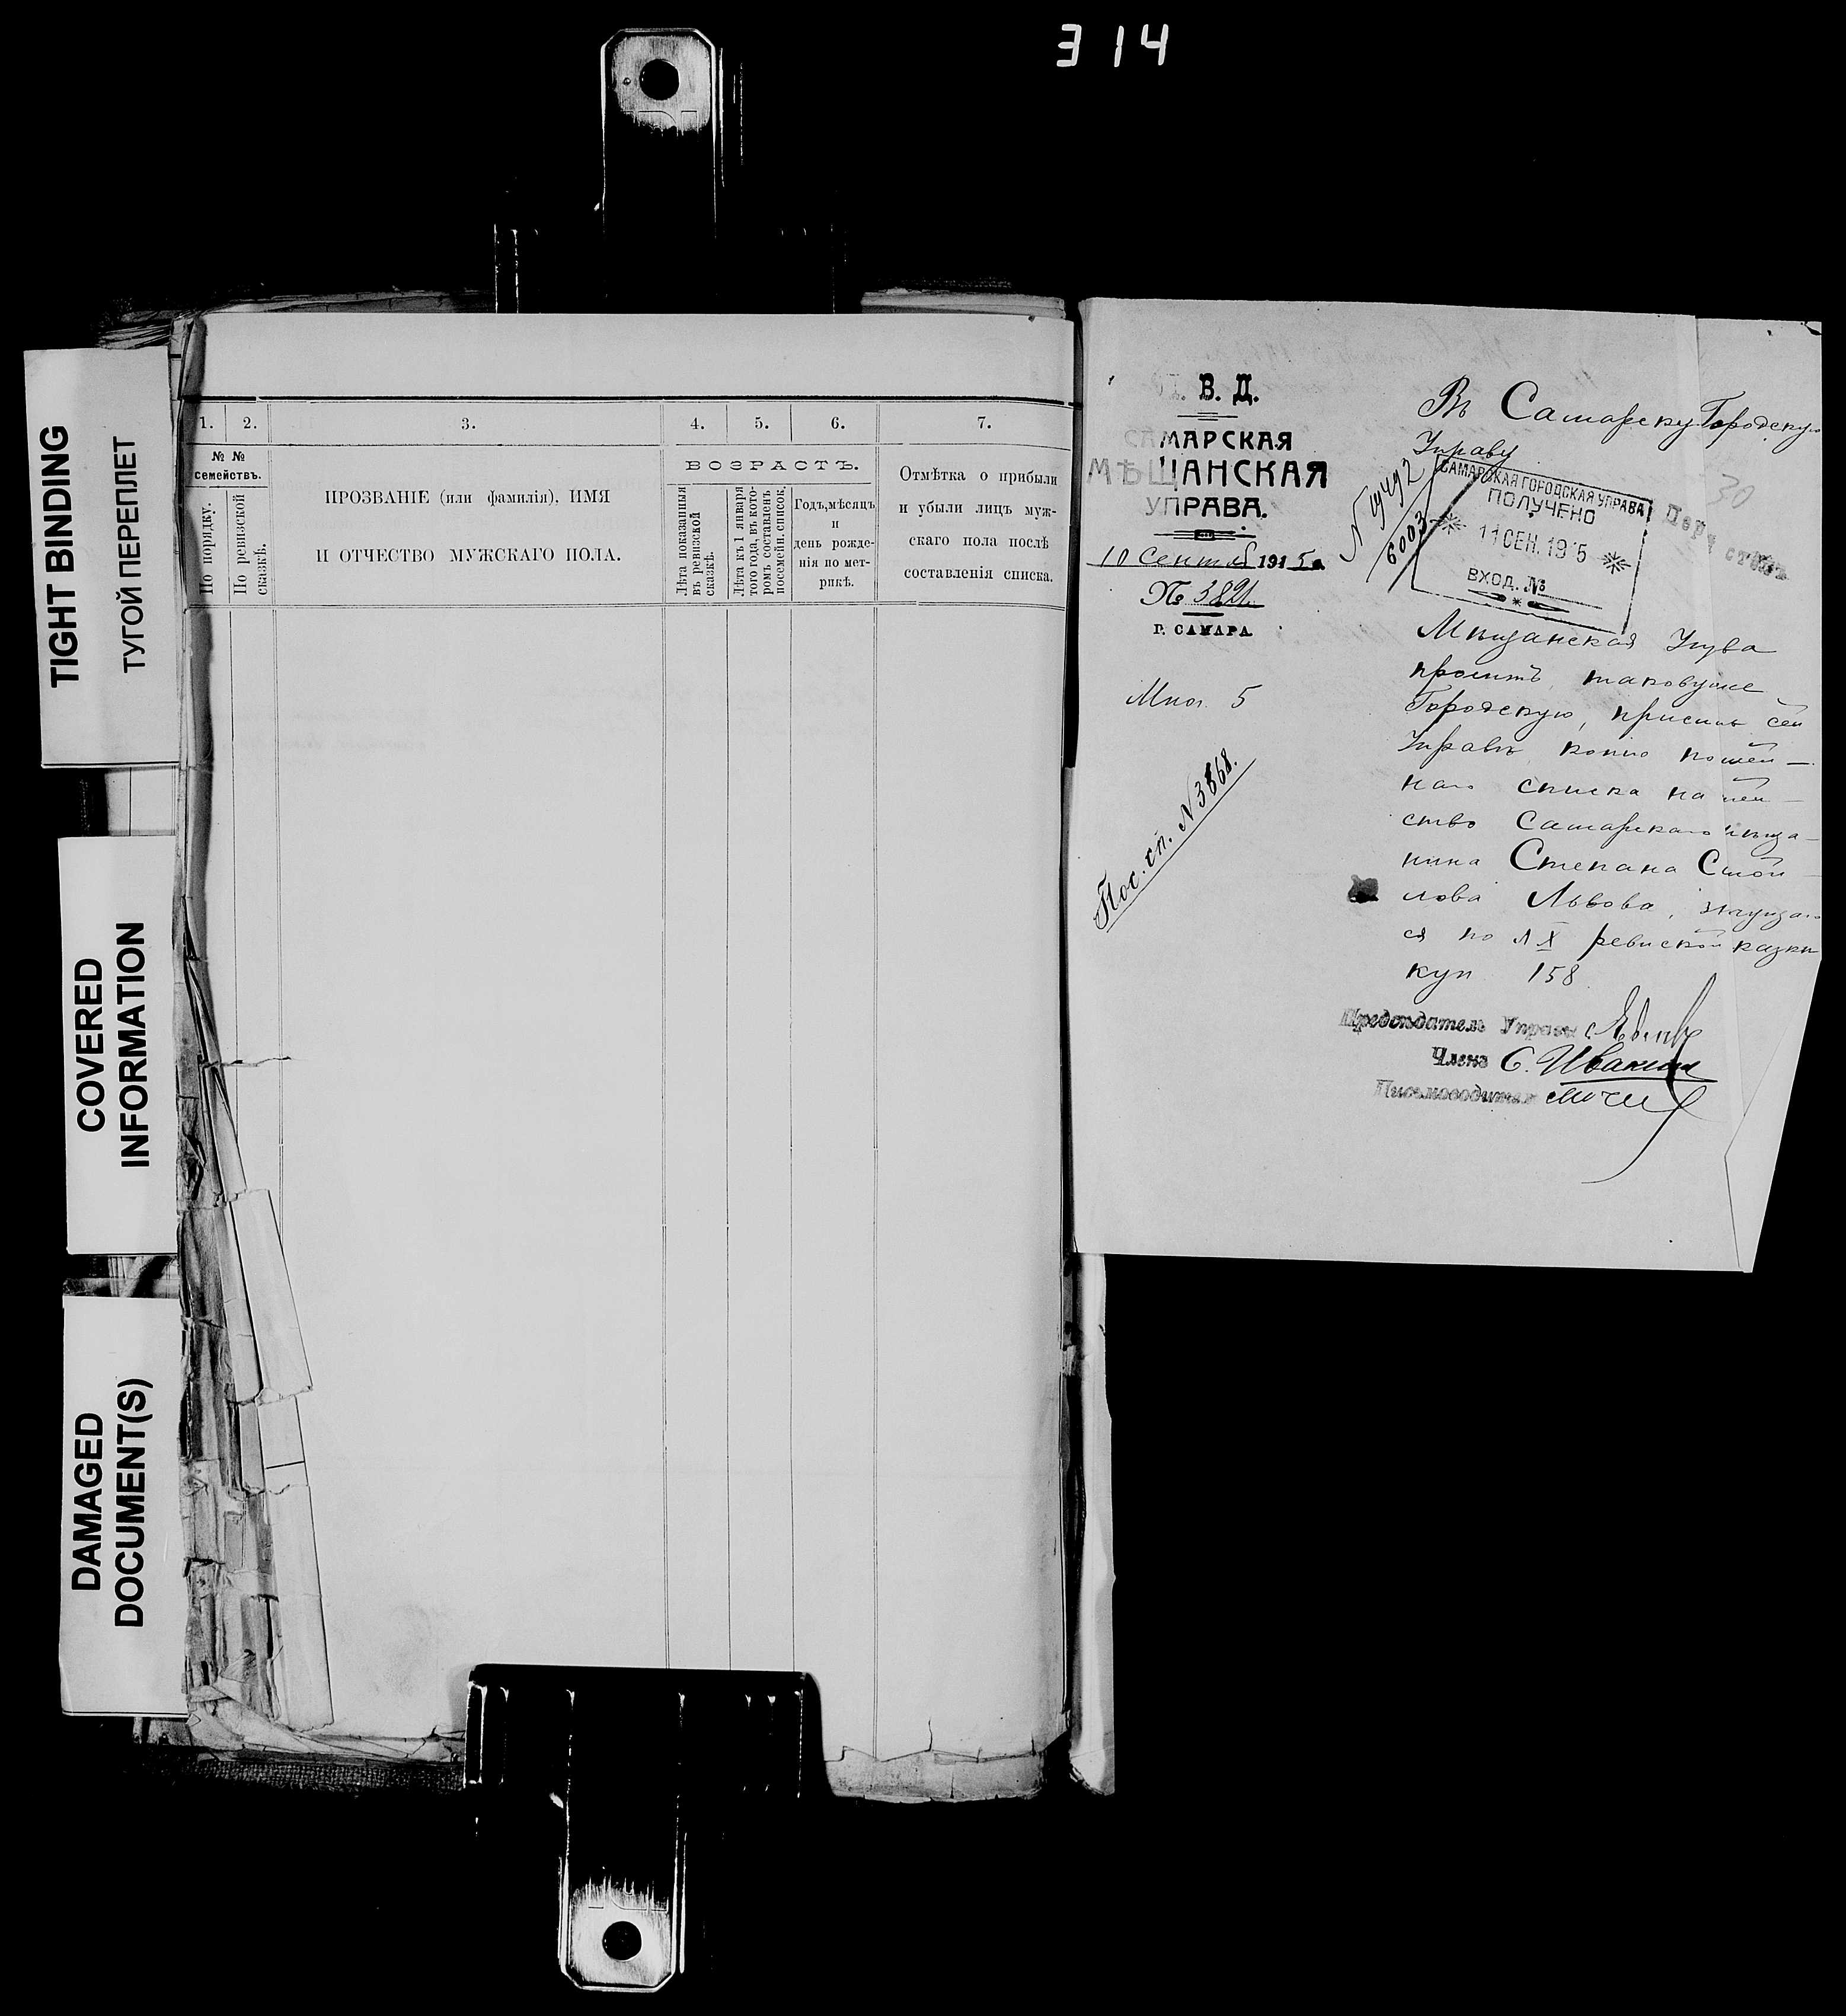 314
TIGHT BINDING
ТУГОЙ ПЕРЕПЛЕТ
COVERED
INFORMATION
DAMAGED
DOCUMENT(S)
1. 2. 3. 4. 5. 6. 7.
№ №
семействъ.
По порядку.
По ревизской
сказкѣ.
ПРОЗВАНІЕ (или фамилія), ИМЯ
И ОТЧЕСТВО МУЖСКАГО ПОЛА.
ВОЗРАСТЪ.
Лѣта показанныя
въ ревизской
сказкѣ.
Лѣта къ 1 января
того года, въ кото-
ромъ составленъ
посемейн. списокъ.
Годъ, мѣсяцъ
и
день рожде-
нія по мет-
рикѣ.
Отмѣтка о прибыли
и убыли лицъ муж-
скаго пола послѣ
составленія списка.
В. Д.
САМАРСКАЯ
МѢЩАНСКАЯ
УПРАВА.
10 Сентяб 1915 г.
№ 3821
Г. САМАРА.
5
Пос. сп. N 3868.
Въ Самарскую Городскую
Управу
N 19492
6003
САМАРСКАЯ ГОРОДСКАЯ УПРАВА
ПОЛУЧЕНО
11 СЕН. 1915
ВХОД. №
30
Мѣщанская Упрва
проситъ таковуюже
Городскую, прислать сей
Управѣ копію
наго списка на
ство Самарскаго мѣща-
нина Степана
лова Львова,
ся по X ревиской сказкѣ
куп 158
Предсѣдатель Управы
Членъ С. Иванов
Письмоводитель